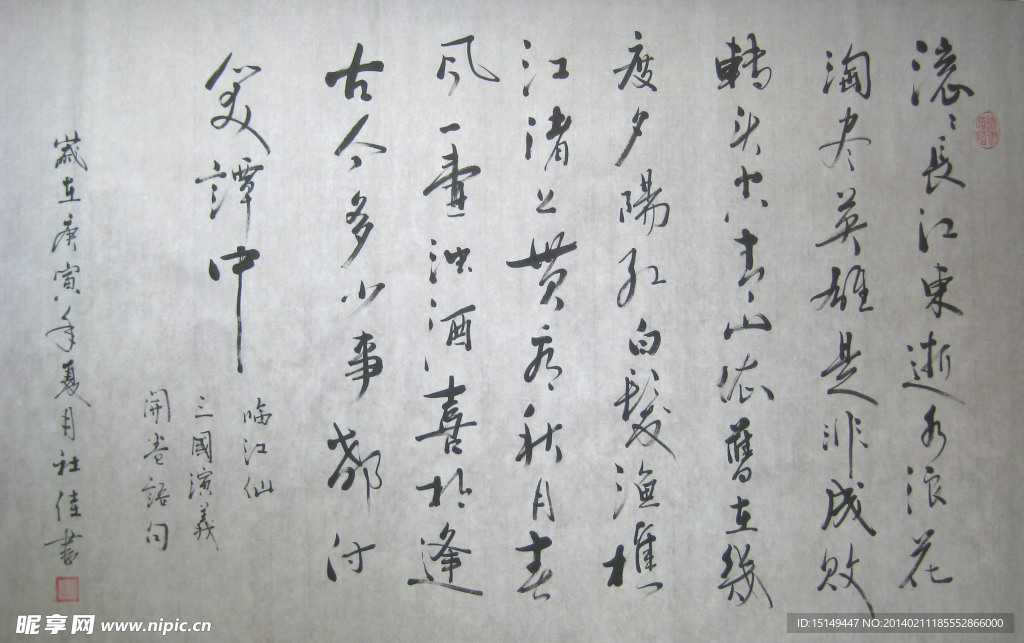 滚々長江東逝水浪花
淘尽英雄是非成敗
轉头空青山依舊在幾
度夕陽红白髮渔樵
江渚上贯看秋月春
风一壶浊酒喜於逢
古今多少事都付
笑譚中
临江仙
三國演義
開卷語句
歲在庚寅年夏月社佳書
昵享网 www.nipic.cn
ID:15149447 NO:20140211185552866000